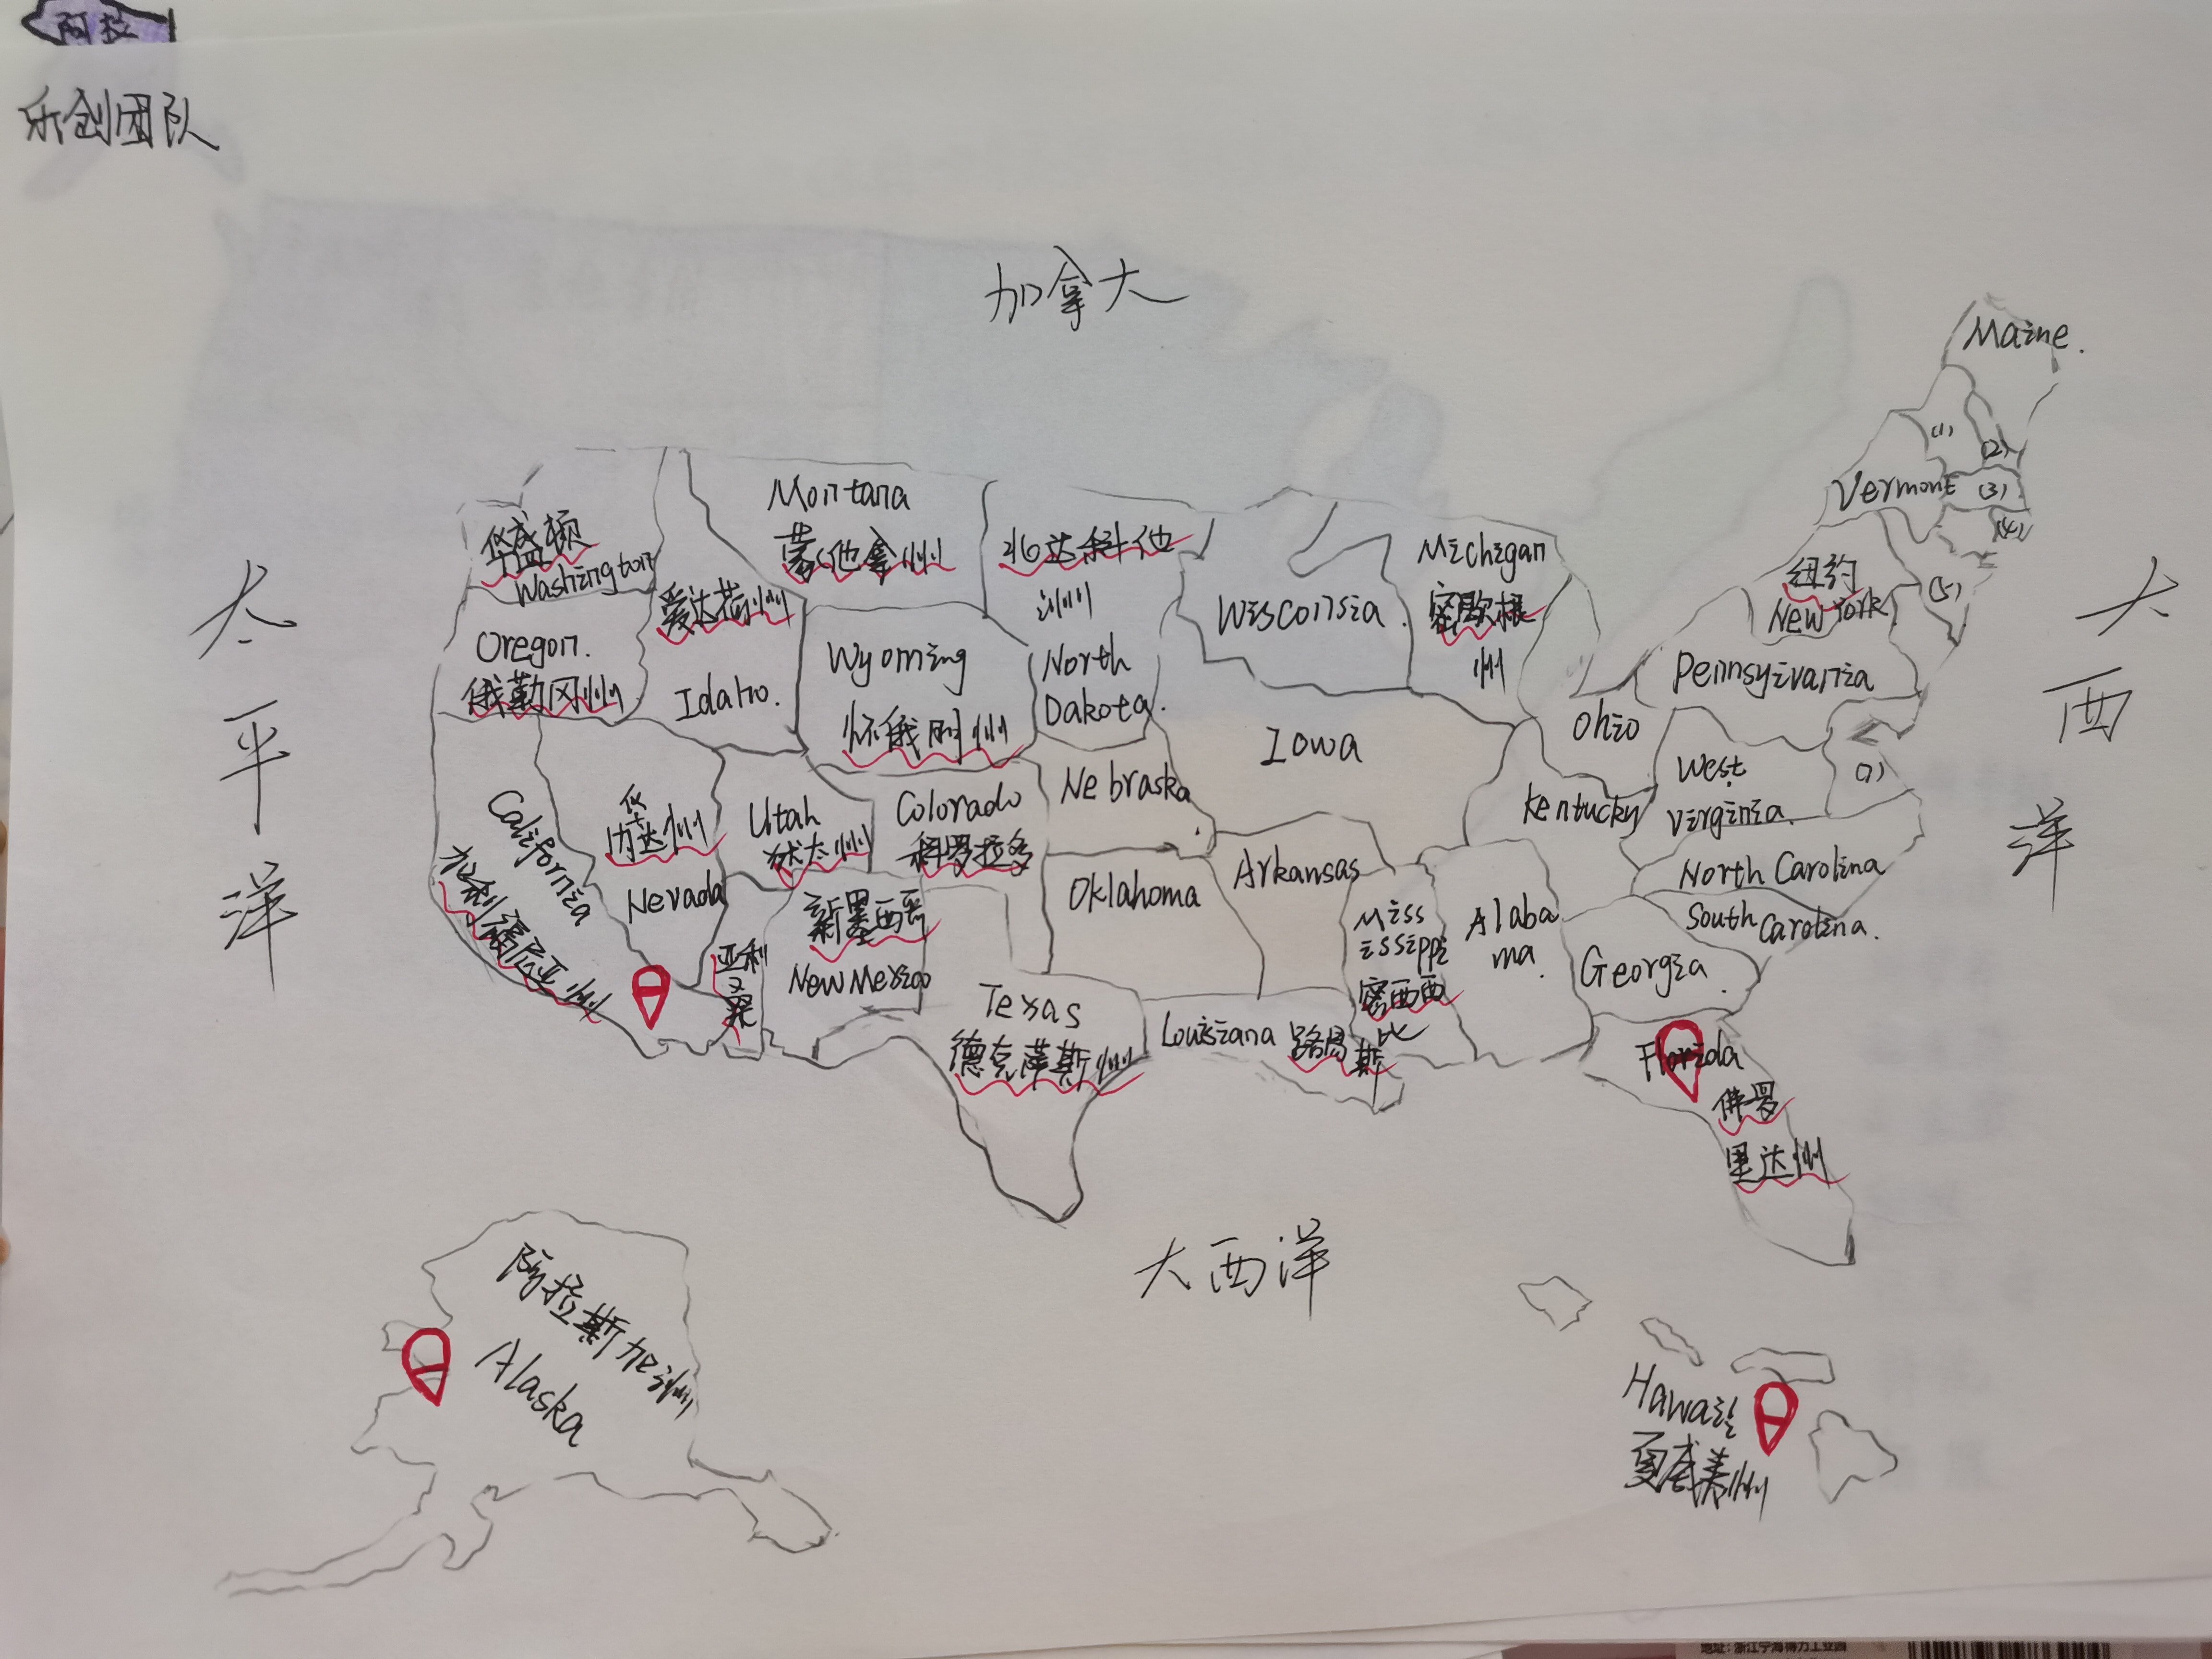 阿拉
乐创团队
加拿大
Maine.
(1)
(2)
Vermont
(3)
(4)
(5)
(7)
太平洋
大西洋
华盛顿
Washington
Montana
蒙他拿州
北达科他
洲
North
Dakota.
爱达荷州
Idaho.
Oregon.
俄勒冈州
Wyoming
怀俄明州
Wisconsia.
Michigan
密歇根
州
纽约
New York
Pennsyivania
Ohio
Iowa
Nebraska
West
Virginia.
Kentucky
California
加利福尼亚州
内华达州
Nevada
Utah
犹太州
Colorado
科罗拉多
Oklahoma
Arkansas
Miss
issippi
密西西
比
Alaba
ma.
North Carolina
South Carolina.
Georgia.
亚利
桑
新墨西哥
New Mexico
Texas
德克萨斯州
Louisiana
Florida
佛罗
里达州
大西洋
阿拉斯加洲
Alaska
Hawaii
夏威夷州
地址:浙江宁海得力工业园